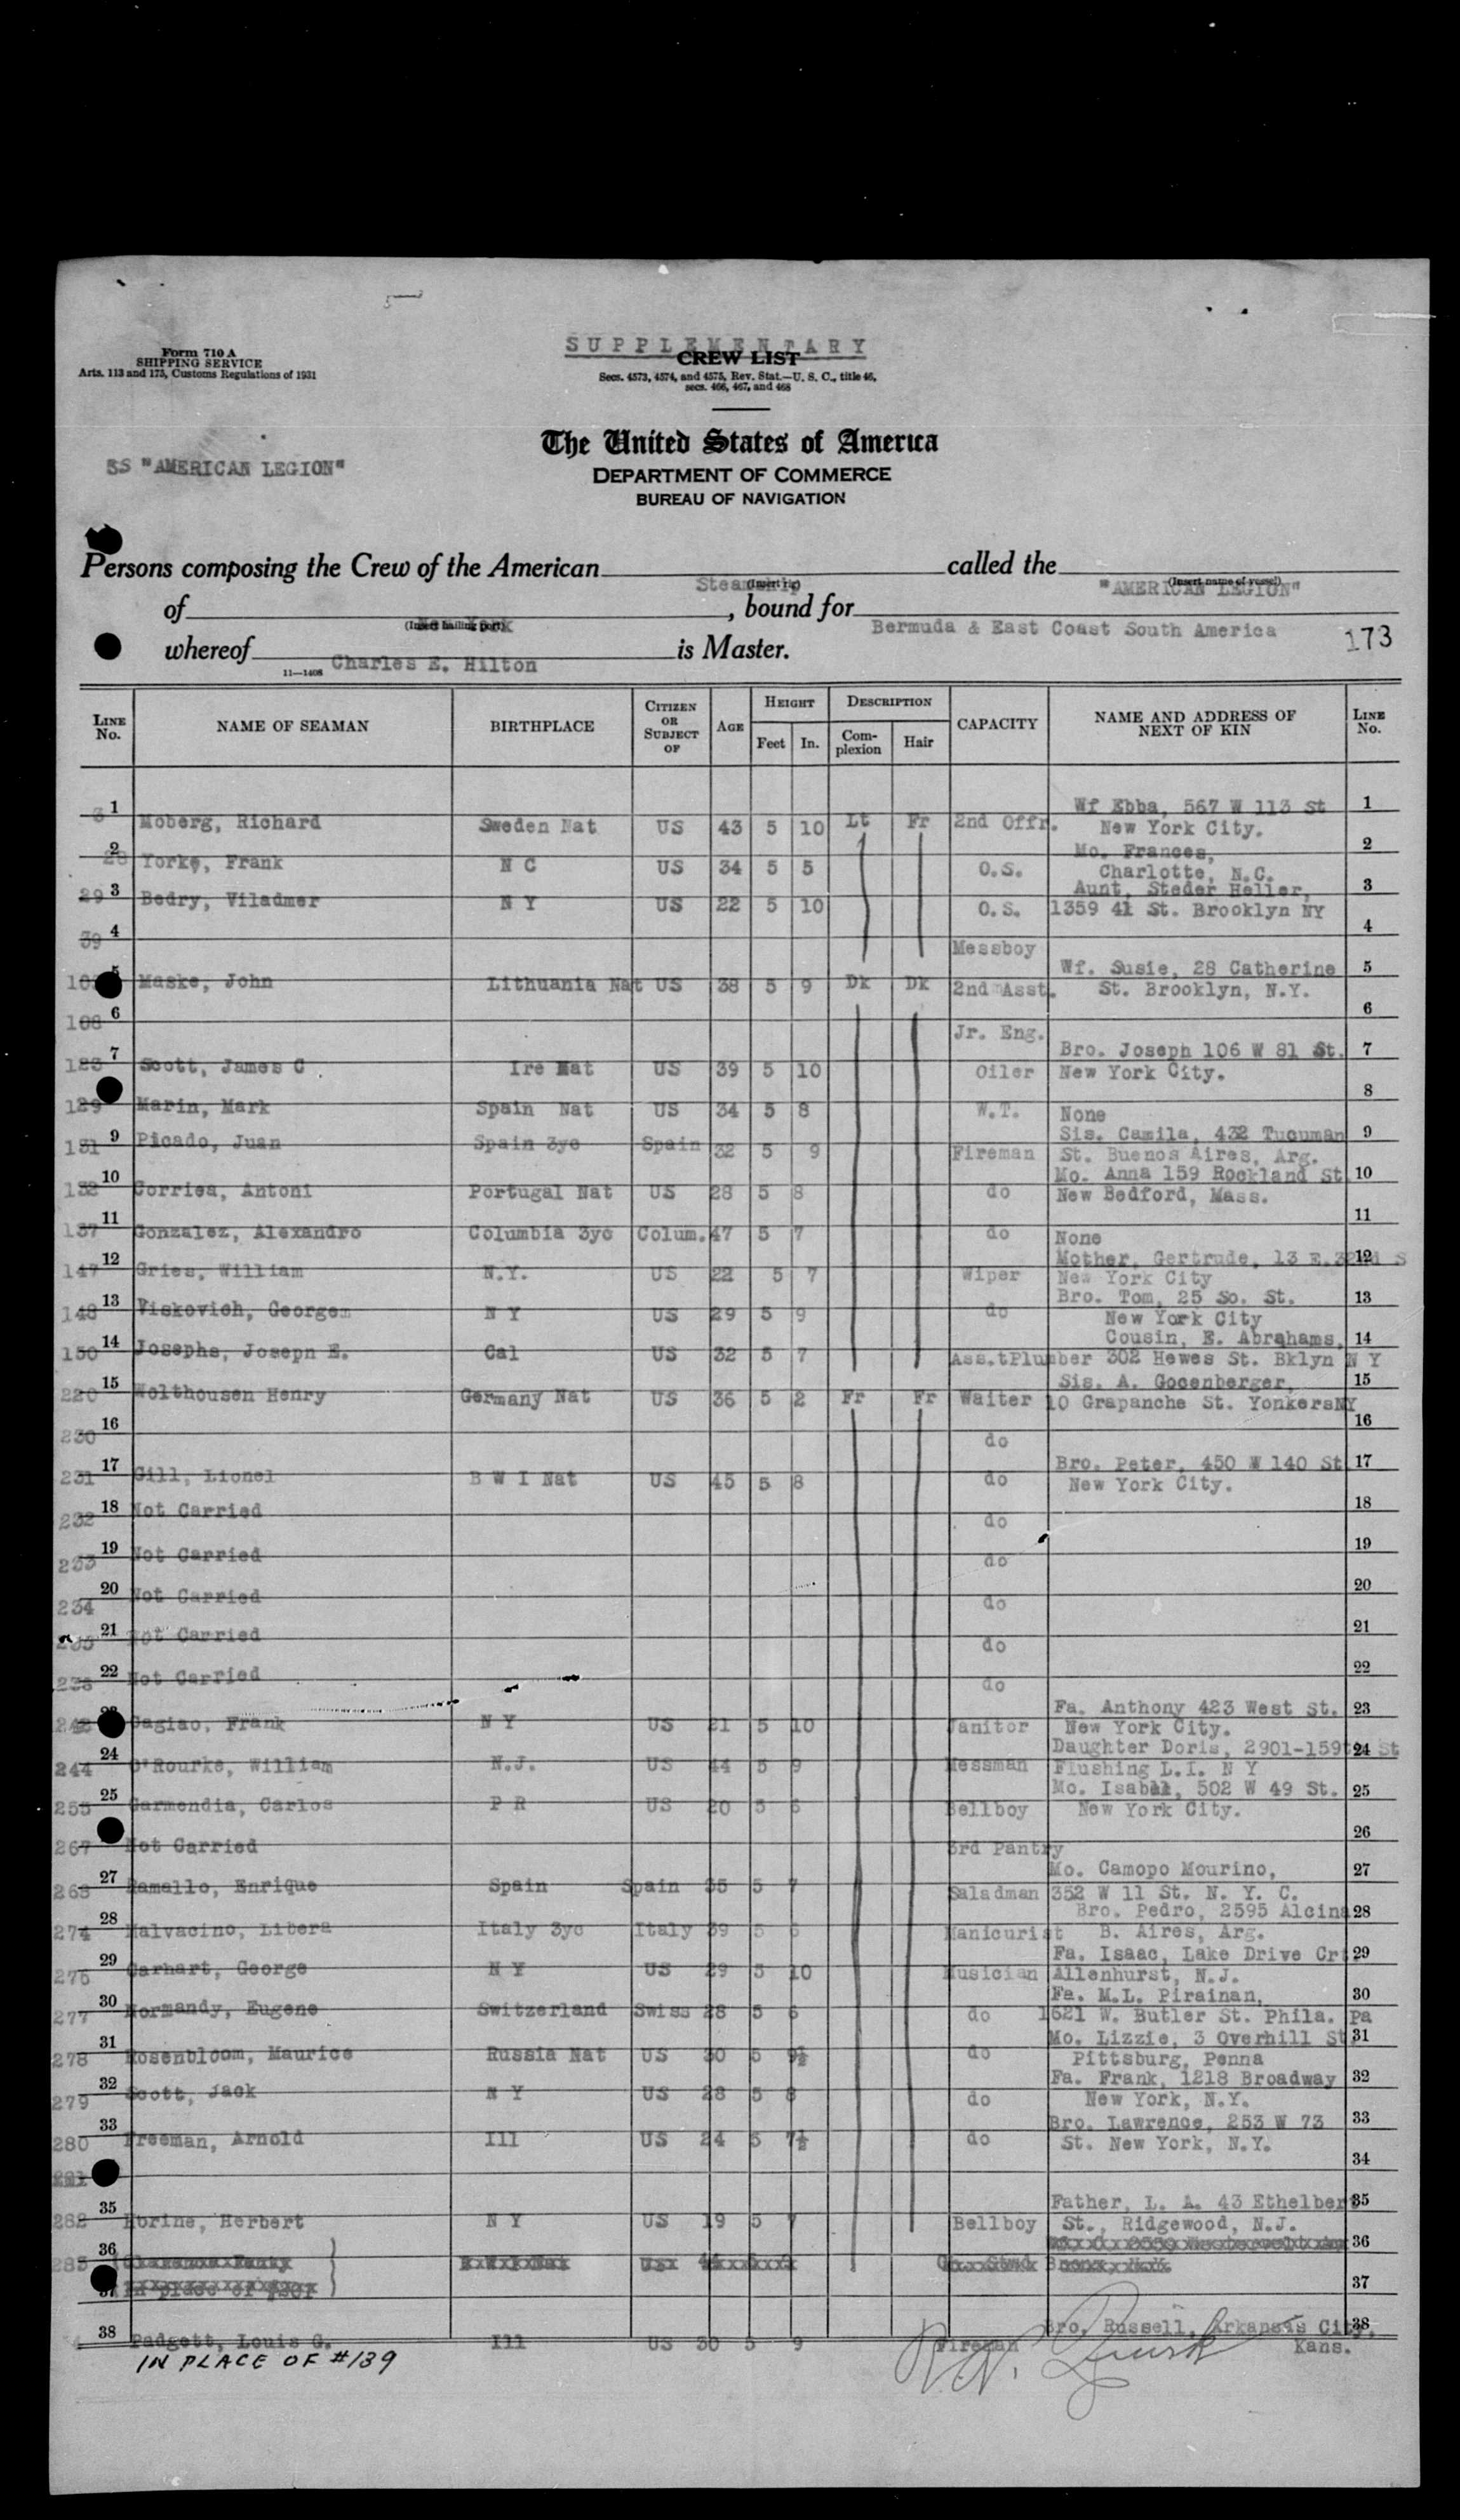 Form 710 A
SHIPPING SERVICE
Arts. 113 and 175, Customs Regulations of 1931
SUPPLEMENTARY
CREW LIST
Secs. 4573, 4574, and 4575, Rev. Stat.—U. S. C., title 46,
secs. 466, 467, and 468
The United States of America
DEPARTMENT OF COMMERCE
BUREAU OF NAVIGATION
SS "AMERICAN LEGION"
Persons composing the Crew of the American Steamship called the "AMERICAN LEGION"
(Insert rig) (Insert name of vessel)
of York, bound for Bermuda & East Coast South America
(Insert hailing port)
whereof Charles E. Hilton is Master. 173
11—1408
LINE No. NAME OF SEAMAN BIRTHPLACE CITIZEN OR SUBJECT OF AGE HEIGHT Feet In. DESCRIPTION Complexion Hair CAPACITY NAME AND ADDRESS OF NEXT OF KIN LINE No.
Wf Ebba, 567 W 113 St
1 Moberg, Richard Sweden Nat US 43 5 10 Lt Fr 2nd Offr. New York City. 1
Mo. Frances,
28 2 Yorke, Frank N C US 34 5 5 O.S. Charlotte, N.C. 2
Aunt, Steder Heller,
29 3 Bedry, Viladmer N Y US 22 5 10 O.S. 1359 41 St. Brooklyn NY 3
39 4 Messboy 4
Wf. Susie, 28 Catherine
5 Maske, John Lithuania Nat US 38 5 9 Dk Dk 2nd Asst. St. Brooklyn, N.Y. 5
108 6 Jr. Eng. 6
Bro. Joseph 106 W 81 St.
123 7 Scott, James C. Ire Nat US 39 5 10 Oiler New York City. 7
129 Marin, Mark Spain Nat US 34 5 8 W.T. None 8
Sis. Camila, 432 Tucuman
131 9 Picado, Juan Spain 3yc Spain 32 5 9 Fireman St. Buenos Aires, Arg. 9
Mo. Anna 159 Rockland St
132 10 Corriea, Antoni Portugal Nat US 28 5 8 do New Bedford, Mass. 10
137 11 Gonzalez, Alexandro Columbia 3yc Colum. 47 5 7 do None 11
Mother, Gertrude, 13 E. S
147 12 Gries, William N.Y. US 22 5 7 Wiper New York City 12
Bro. Tom, 25 So. St.
148 13 Viskovich, George N Y US 29 5 9 do New York City 13
Cousin, E. Abrahams,
150 14 Josephs, Josepn E. Cal US 32 5 7 Ass.tPlumber 302 Hewes St. Bklyn N Y 14
Sis. A. Gocenberger,
220 15 Wolthousen Henry Germany Nat US 36 5 2 Fr Fr Waiter 10 Grapanche St. YonkersNY 15
230 16 do 16
Bro. Peter, 450 W 140 St
231 17 Gill, Lionel B W I Nat US 45 5 8 do New York City. 17
232 18 Not Carried do 18
233 19 Not Carried do 19
234 20 Not Carried do 20
21 Not Carried do 21
22 Not Carried do 22
Fa. Anthony 423 West St.
Gagiao, Frank N Y US 21 5 10 Janitor New York City. 23
Daughter Doris, 2901-159 St
244 24 O'Rourke, William N.J. US 44 5 9 Messman Flushing L.I. N Y 24
Mo. Isabel, 502 W 49 St.
25 Garmendia, Carlos P R US 20 5 6 Bellboy New York City. 25
267 Not Carried 3rd Pantry 26
Mo. Camopo Mourino,
268 27 Ramallo, Enrique Spain Spain 35 5 7 Saladman 352 W 11 St. N. Y. C. 27
Bro. Pedro, 2595 Alcina
274 28 Malvacino, Libera Italy 3yc Italy 39 5 6 Manicurist B. Aires, Arg. 28
Fa. Isaac, Lake Drive Crt
276 29 Carhart, George N Y US 29 5 10 Musician Allenhurst, N.J. 29
Fa. M.L. Pirainan,
277 30 Normandy, Eugene Switzerland Swiss 28 5 6 do 1621 W. Butler St. Phila. Pa 30
Mo. Lizzie, 3 Overhill St
278 31 Rosenbloom, Maurice Russia Nat US 30 5 9½ do Pittsburg, Penna 31
Fa. Frank, 1218 Broadway
279 32 Scott, Jack N Y US 28 5 8 do New York, N.Y. 32
Bro. Lawrence, 253 W 73
280 33 Freeman, Arnold Ill US 24 5 7½ do St. New York, N.Y. 33
34
Father, L. A. 43 Ethelbert
282 35 Horine, Herbert N Y US 19 5 7 Bellboy St., Ridgewood, N.J. 35
36 36
37
Bro, Russell, Arkansas City,
38 Padgett, Louis G. Ill US 30 5 9 Fireman Kans. 38
IN PLACE OF #139